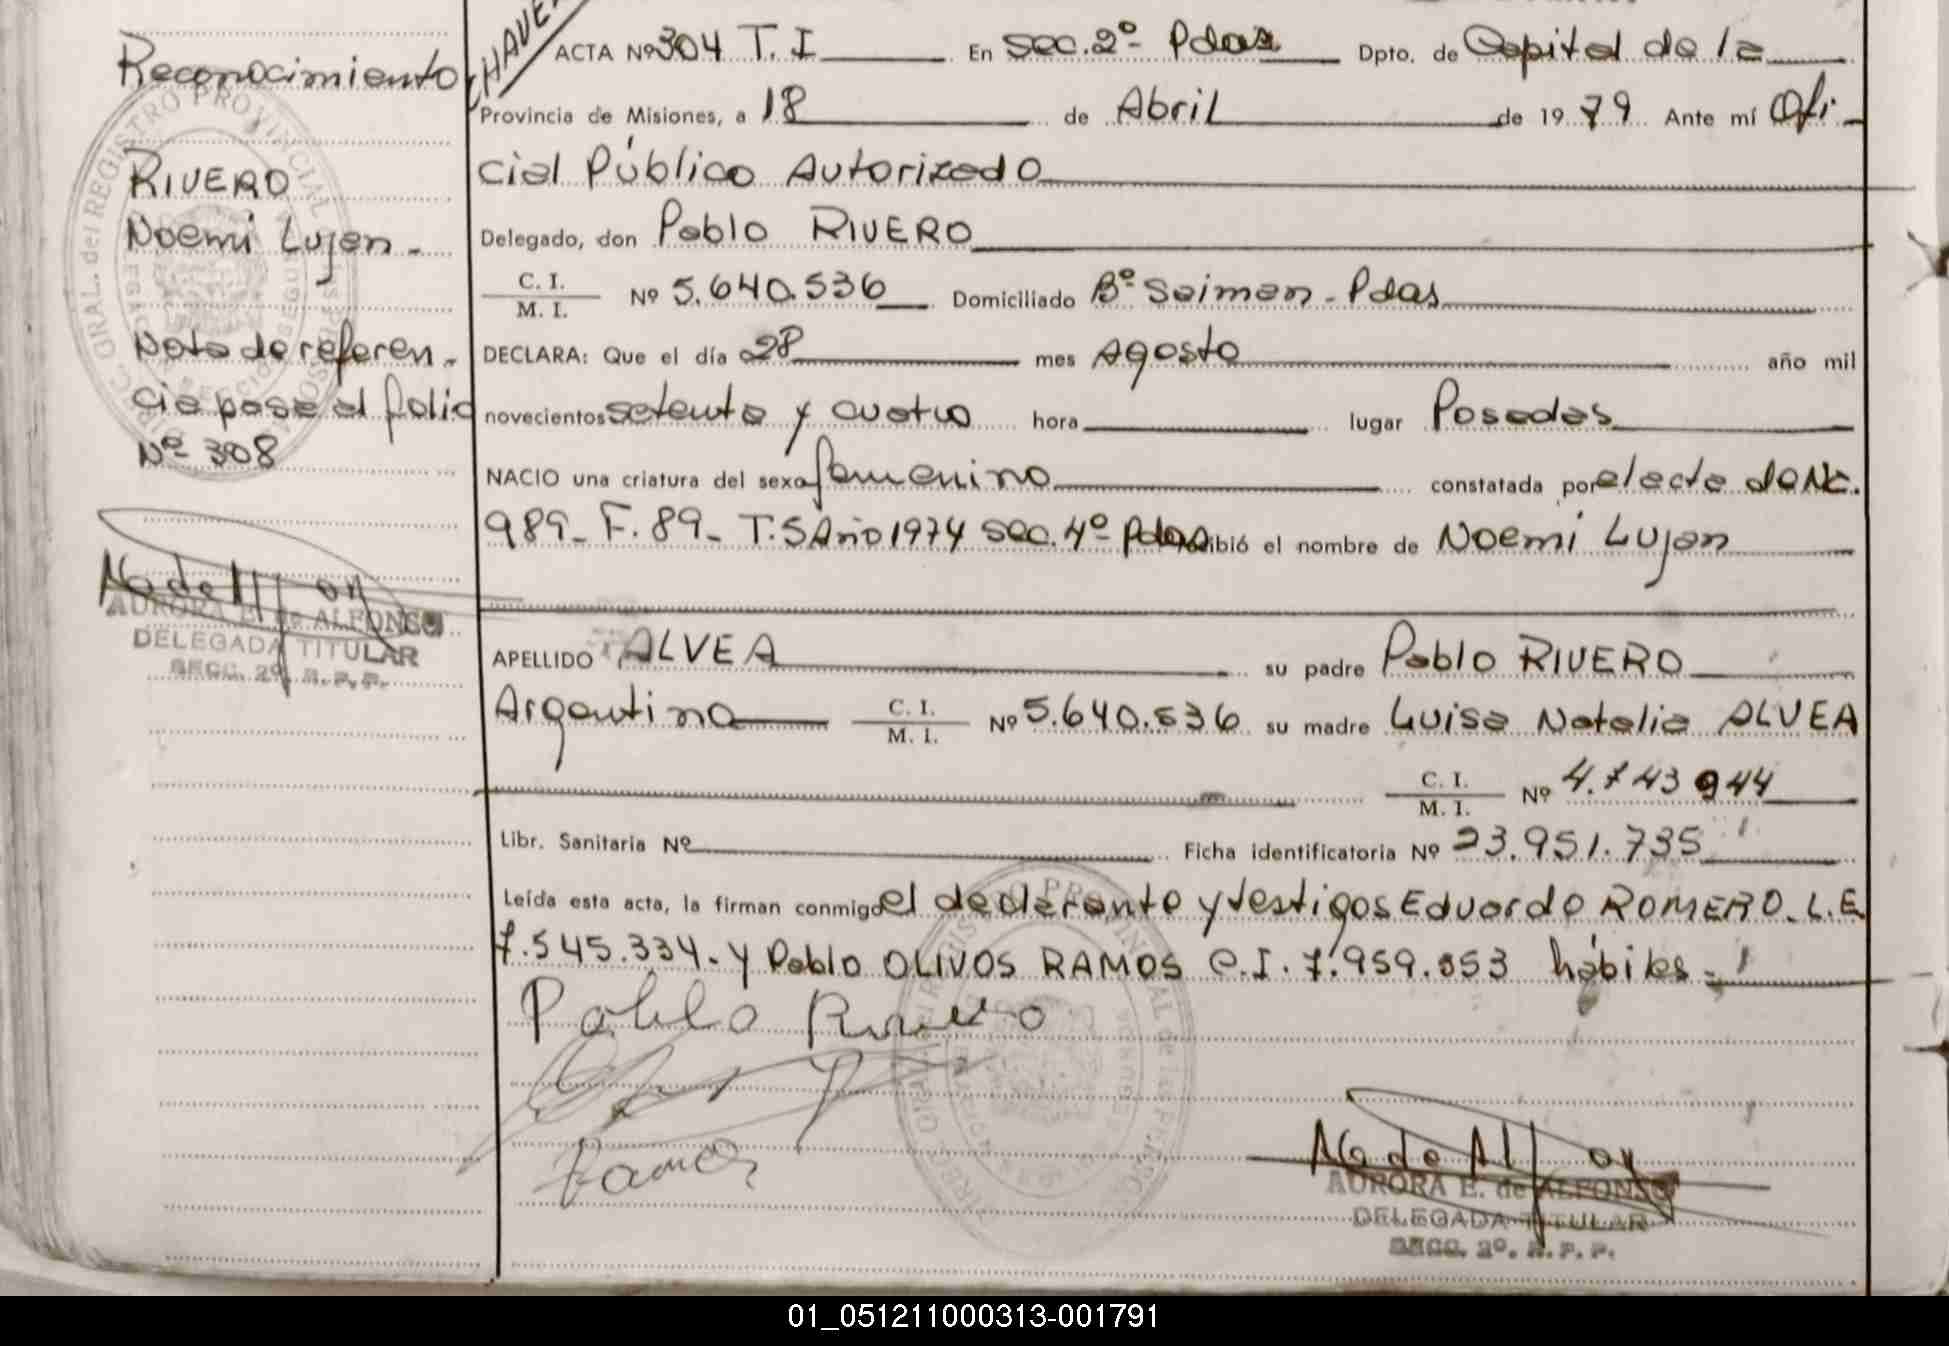 Reconocimiento
RIVERO
Noemi Lujan -
Nota de referen -
cia pasa al folio
Nº 308
AURORA E. de ALFONSO
DELEGADA TITULAR
SECC. 2º. R. P. P.
ACTA Nº 304 T. I En Sec. 2º- Pdas Dpto. de Capital de la
Provincia de Misiones, a 18 de Abril de 1979 Ante mí Ofi-
cial Público Autorizado
Delegado, don Pablo RIVERO
C. I. / M. I. Nº 5.640.536 Domiciliado Bº Saiman - Pdas
DECLARA: Que el día 28 mes Agosto año mil
novecientos setenta y cuatro hora lugar Posadas
NACIO una criatura del sexo femenino constatada por el acta de Nac.
989- F. 89- T. 5 Año 1974 Sec. 4º Pdas ibió el nombre de Noemi Lujan
APELLIDO ALVEA su padre Pablo RIVERO
Argentino C. I. / M. I. Nº 5.640.536 su madre Luisa Natalia ALVEA
C. I. / M. I. Nº 4.743 944
Libr. Sanitaria Nº Ficha identificatoria Nº 23.951.735
Leída esta acta, la firman conmigo el declarante y testigos Eduardo ROMERO. L.E
7.545.334. y Pablo OLIVOS RAMOS C.I. 7.959.553 hábiles.
Pablo Rivero
Ramos
AURORA E. de ALFONSO
DELEGADA TITULAR
SECC. 2º. R. P. P.
01_051211000313-001791